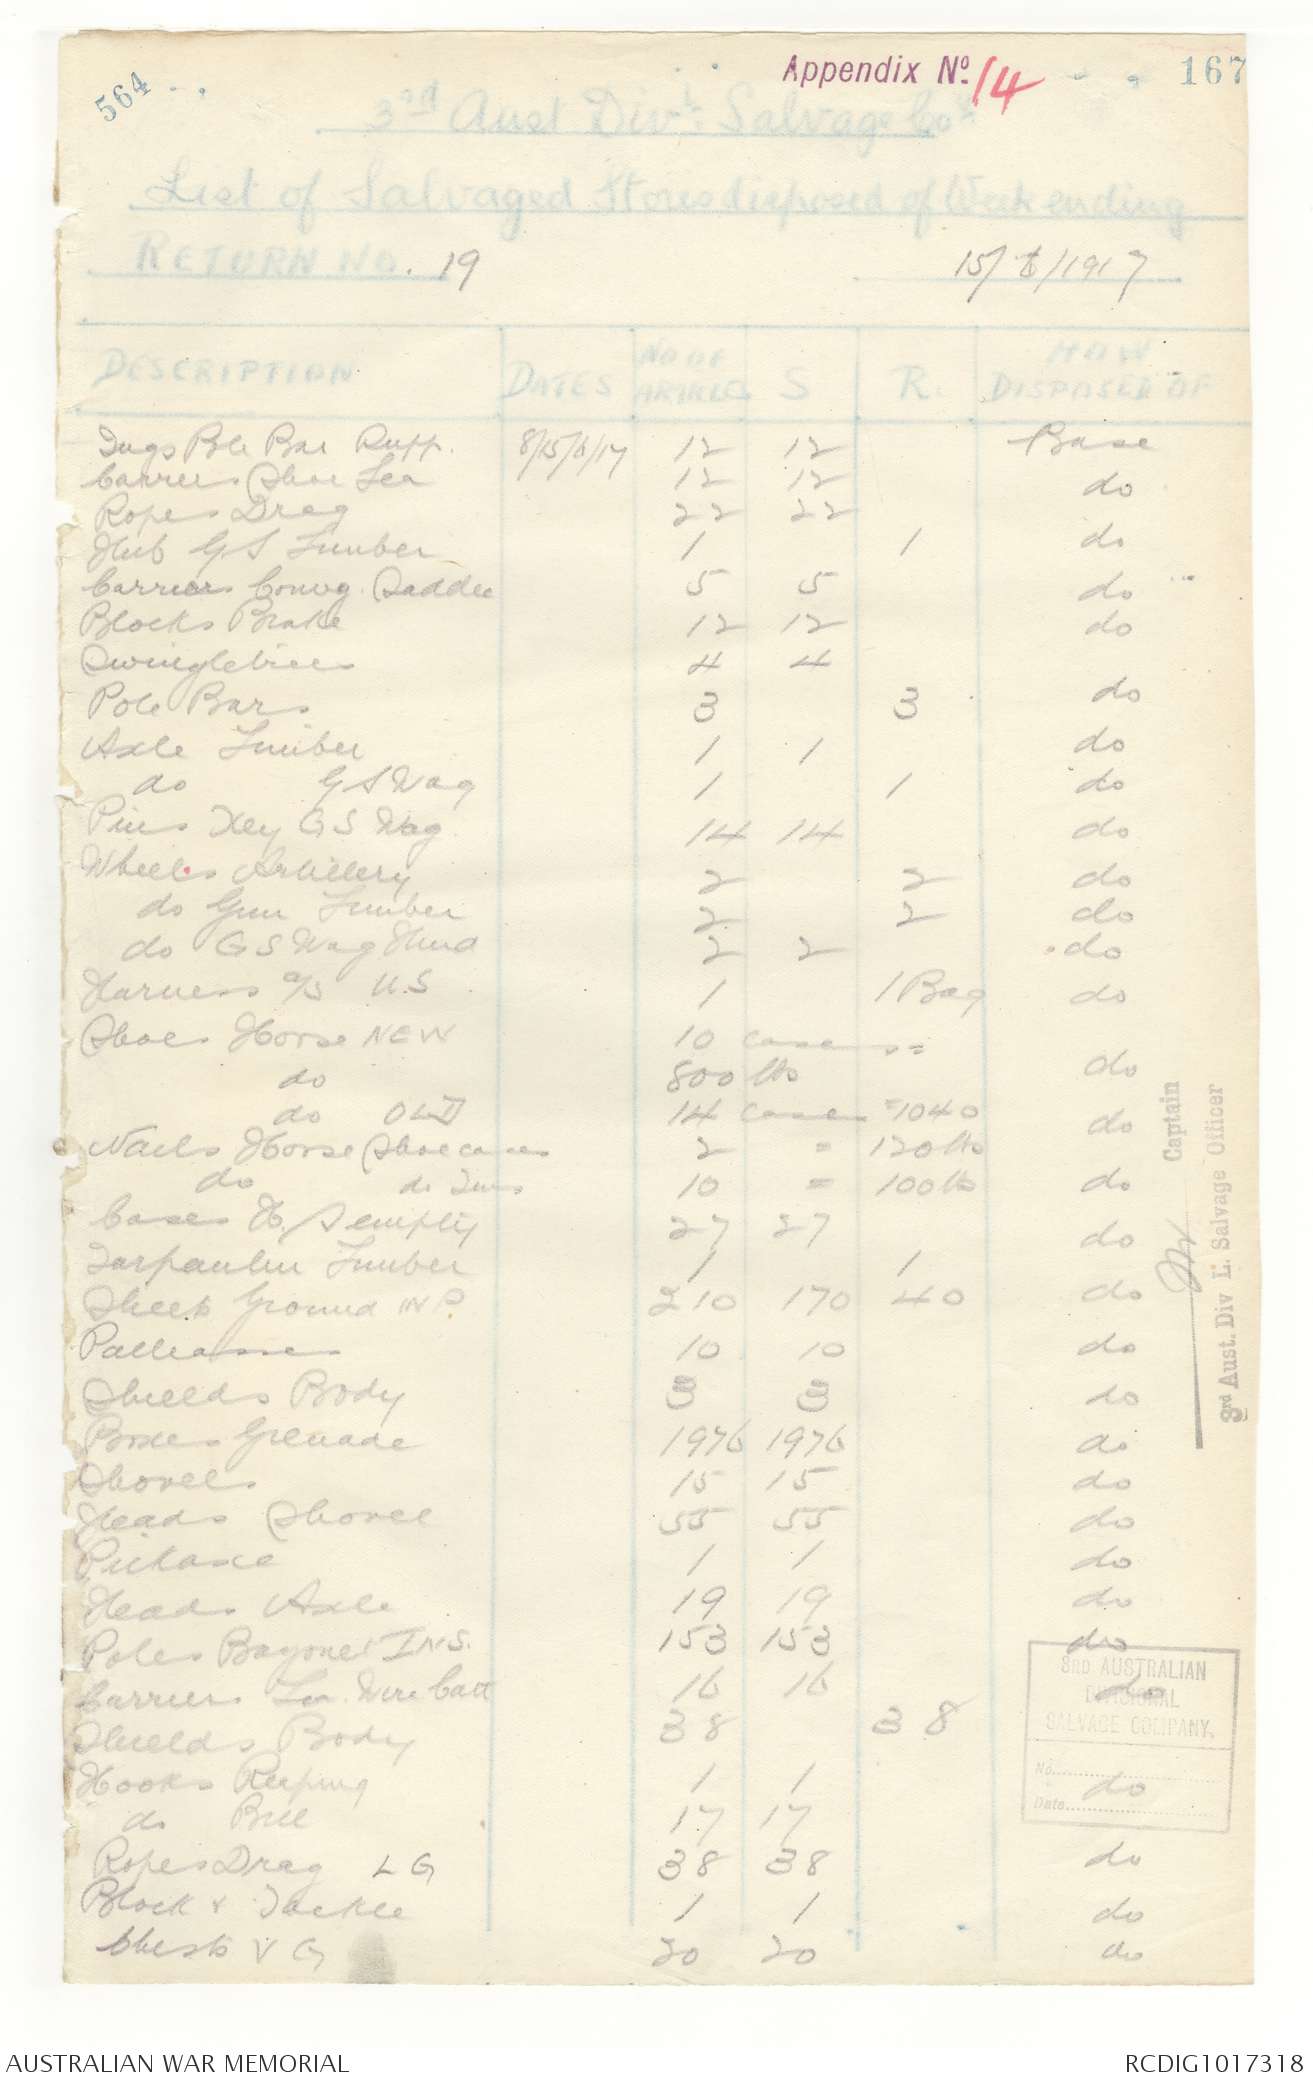 564
Appendix No. 14
167
3rd Aust Divl. Salvage Coy
List of Salvaged Stores disposed of Week ending
RETURN NO. 19 15/6/1917
DESCRIPTION DATES NO OF ARTICLES S R. HOW DISPOSED OF
Tugs Pole Bar Supp. 8/15/6/17 12 12 Base
Carriers Shoe Lea 12 12 do
Ropes Drag 22 22
Hub G S Limber 1 1 do
Carriers Convg. Saddle 5 5 do
Blocks Brake 12 12 do
Swingletrees 4 4
Pole Bars 3 3 do
Axle Limber 1 1 do
do G S Wag 1 1 do
Pins Key G S Wag 14 14 do
Wheels Artillery 2 2 do
do Gun Limber 2 2 do
do G S Wag Hind 2 2 do
Harness o/s U.S 1 1 Bag do
Shoes Horse NEW 10 cases =
do 800 lbs do
do OLD 14 cases = 1040 do
Nails Horse Shoe cases 2 = 120 lbs
do do Tins 10 = 100 lb do
Cases H/S empty 27 27 do
Tarpaulin Limber 1 1
Sheets Ground W P. 210 170 40 do
Palleasses 10 10 do
Shields Body 3 3 do
Boxes Grenade 1976 1976 do
Shovels 15 15 do
Heads Shovel 55 55 do
Pickaxe 1 1 do
Heads Axle 19 19 do
Poles Bayonet INS. 153 153 do
Carriers Lea. Wire Cutt 16 16 do
Shields Body 38 38
Hooks Reaping 1 1 do
do Bill 17 17
Ropes Drag L G 38 38 do
Block & Tackle 1 1 do
Chests V G 20 20 do
Captain
3rd Aust. Div L. Salvage Officer
3RD AUSTRALIAN
DIVISIONAL
SALVAGE COMPANY.
No.
Date
AUSTRALIAN WAR MEMORIAL RCDIG1017318